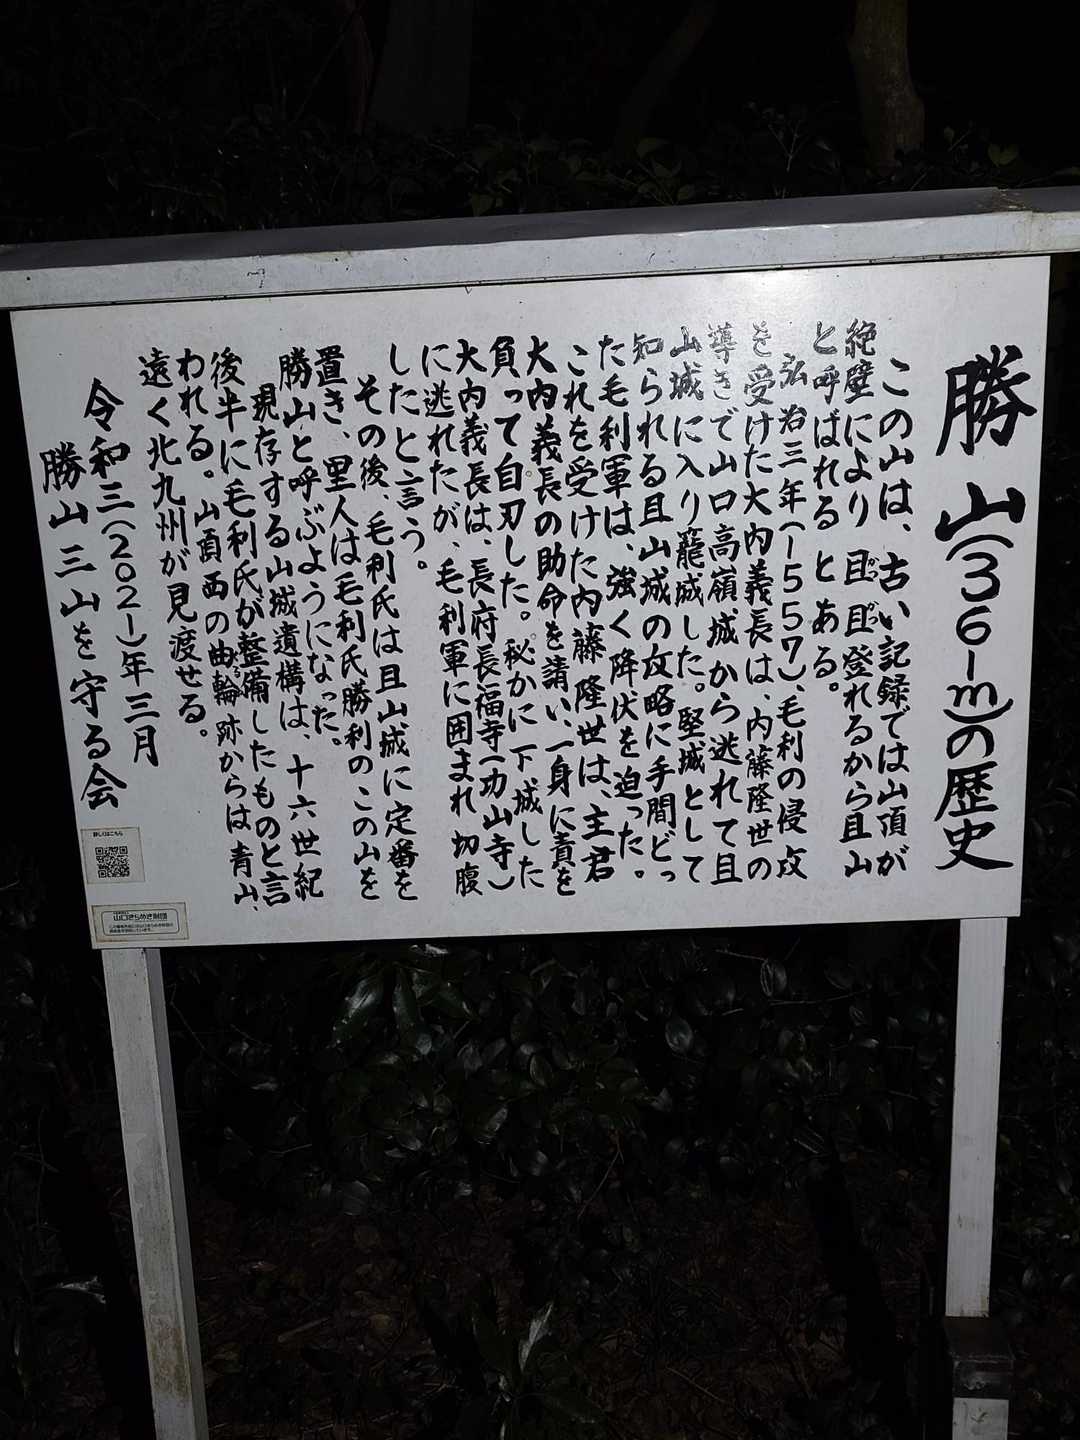 勝山(361m)の歴史
この山は、古い記録では山頂が
絶壁により且且登れるから且山
と呼ばれるとある。
弘治三年(1557)、毛利の侵攻
を受けた大内義長は、内藤隆世の
導きで山口高嶺城から逃れて且
山城に入り籠城した。堅城として
知られる且山城の攻略に手間どっ
た毛利軍は、強く降伏を迫った。
これを受けた内藤隆世は、主君
大内義長の助命を請い、一身に責を
負って自刃した。秘かに下城した
大内義長は、長府長福寺(功山寺)
に逃れたが、毛利軍に囲まれ切腹
したと言う。
その後、毛利氏は且山城に定番を
置き、里人は毛利氏勝利のこの山を
勝山と呼ぶようになった。
現存する山城遺構は、十六世紀
後半に毛利氏が整備したものと言
われる。山頂西の曲輪跡からは青山、
遠く北九州が見渡せる。
令和三(2021)年三月
勝山三山を守る会
詳しくはこちら
山口きらめき財団